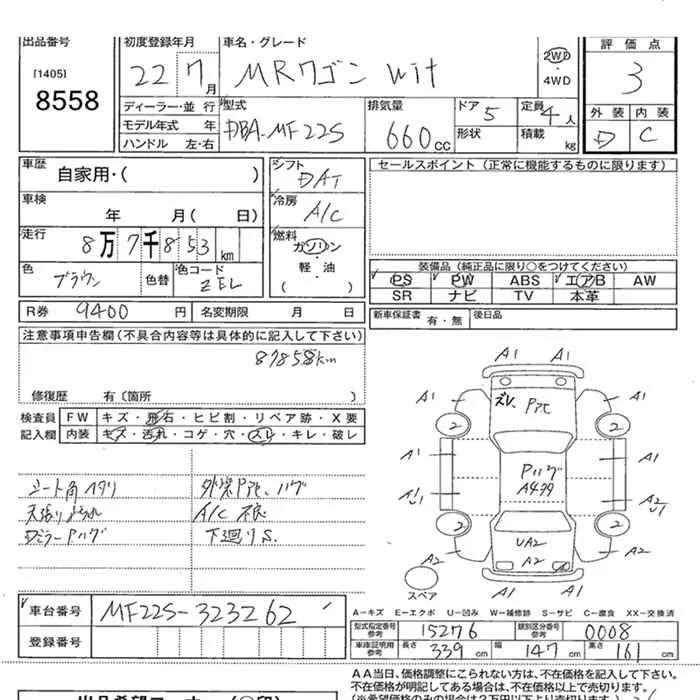 出品番号 初度登録年月 車名・グレード 評価点
[1405]
8558
22 7月 MRワゴン wit 2WD・4WD 3
ディーラー・並行 型式 排気量 ドア 5 定員 4人 外装 内装
モデル年式 年 DBA-MF22S 660cc 形状 積載 kg D C
ハンドル 左・右
車歴 シフト セールスポイント (正常に機能するものに限ります)
自家用・( ) DAT
車検 冷房
年 月( 日) A/C
走行 8万7千853km 燃料 ガソリン
軽・油
( )
色 ブラウン 色替 色コード ZEL
装備品 (純正品に限り○をつけてください)
PS PW ABS エアB AW
SR ナビ TV 本革
R券 9400円 名変期限 月 日 新車保証書 有・無 後日品
注意事項申告欄(不具合内容等は具体的に記入して下さい)
87858km
修復歴 有(箇所 )
検査員 FW キズ・飛石・ヒビ割・リペア跡・X要
記入欄 内装 キズ・汚れ・コゲ・穴・スレ・キレ・破レ
シート角ヘタリ
天張りよごれ A/C不良
Dミラーハゲ 下廻りS.
A1 A1
A1 ズレ A1
2 2
A1 Pハゲ A1
A1 U1 A2 U1
2 UA2 2
A2 A2 A2
スペア A1 A1
A-キズ E-エクボ U-凹み W-補修跡 S-サビ C-腐食 XX-交換済
車台番号 MF22S-323262
登録番号
型式指定番号 参考 15276 類別区分番号 参考 0008
車庫証明用 参考 長さ 339cm 幅 147cm 高さ 161cm
AA当日、価格調整にこられない方は、不在価格を記入して下さい。
不在価格が明記してある場合は、不在価格以上で売ります。